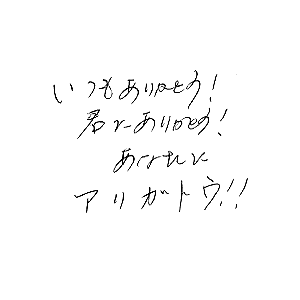 いつもありがとう!
君にありがとう!
あなたに
アリガトウ!!